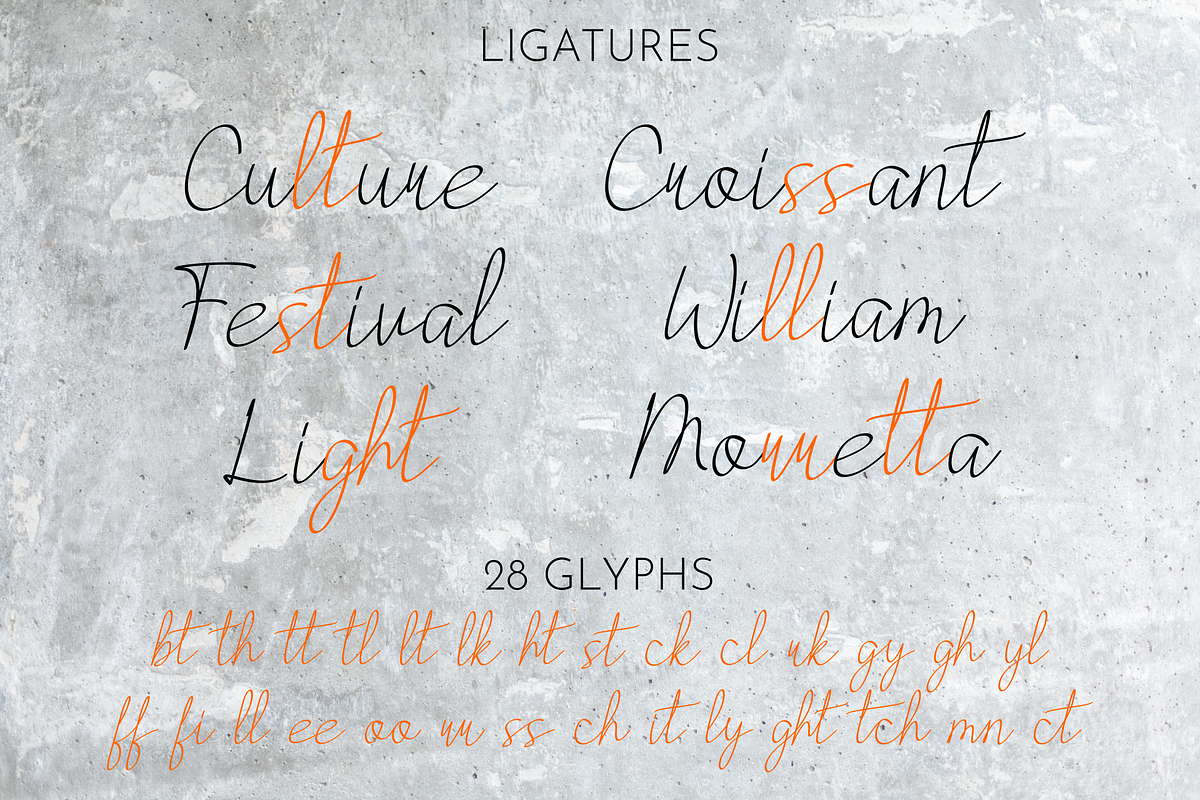 LIGATURES
Culture Croissant
Festival William
Light Morretta
28 GLYPHS
bt th tt tl lt lk ht st ck cl rk gy gh yl
ff fi ll ee oo rr ss ch it ly ght tch mn ct